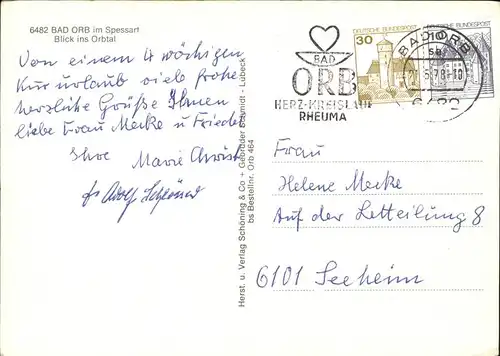 6482 BAD ORB im Spessart
Blick ins Orbtal
Von einem 4 wöchigen
Kururlaub viele frohe
herzliche Grüße Ihnen
liebe Frau Merke u Friedel
Ihre Marie Christ
u. Adolf
Herst. u. Verlag Schöning & Co + Gebrüder Schmidt - Lübeck
bs Bestellnr. Orb 464
BAD
ORB
HERZ-KREISLAUF
RHEUMA
30
DEUTSCHE BUNDESPOST
DEUTSCHE BUNDESPOST
BAD ORB
6482
Frau
Helene Merke
Auf der Letteilung 8
6101 Seeheim